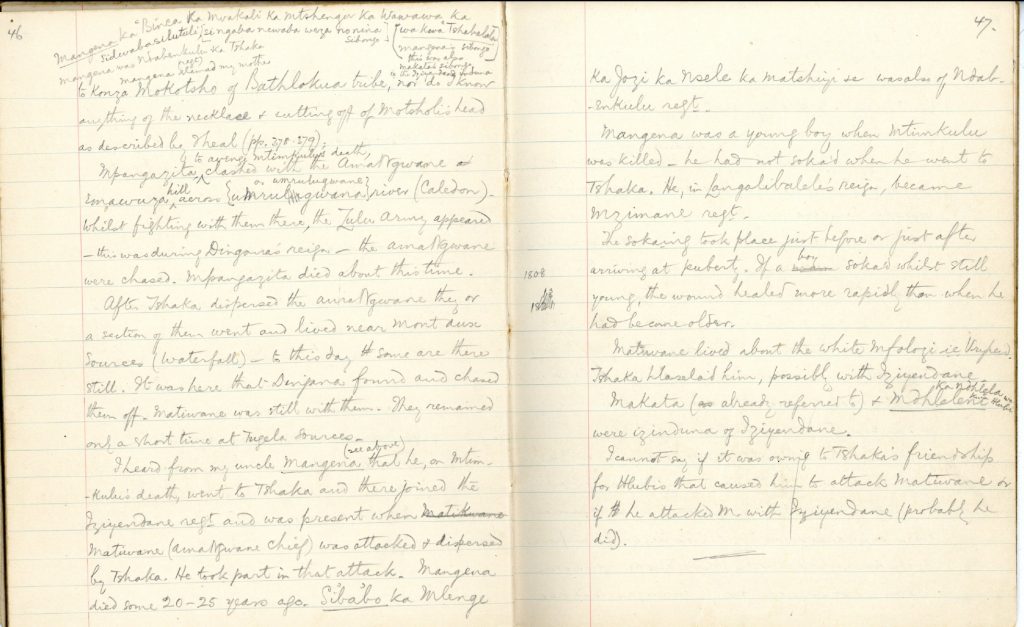 46
Mangena ka Binca ka Mvakali ka Mtshengu ka Wawawa ka
Sidwabasilutuli [singabanewaba weza nonina
sibongo
[wa kwa Tshabalala
Mangena's sibongo
this was also
Makata's sibongo
Mangena was Ndabenkulu ka Tshaka
regt
Mangena my mother
to konza Mokotsho of Bathlokua tribe, nor do I know
anything of the necklace & cutting off of Motsholi's head
as described by Theal (pp. 278-279).
to avenge Mtimkulu's death,
Mpangazita clashed with the AmaNgwane at
hill or umrulugwane}
Emawuza, across {umrulungwana river (Caledon) -
whilst fighting with them there, the Zulu army appeared
- this was during Dingana's reign - the amaNgwane
were chased. Mpangazita died about this time.
After Tshaka dispersed the amaNgwane they or
a section of them went and lived near Mont aux
Sources (waterfall) - to this day some are there
still. It was here that Dingana found and chased
them off. Matiwane was still with them. They remained
only a short time at Tugela sources.
(see above)
I heard from my uncle Mangena that he, on Mtim-
-kulu's death, went to Tshaka and there joined the
Iziyendane regt and was present when
Matiwane (amaNgwane chief) was attacked & dispersed
by Tshaka. He took part in that attack. Mangena
died some 20-25 years ago. Sibabo ka Mlenge
47.
ka Jozi ka Nsele ka Matshiyi se was also of Ndab-
-enkulu regt.
Mangena was a young boy when Mtimkulu
was killed - he had not soka'd when he went to
Tshaka. He, in Langalibalele's reign, became
Mzimane regt.
The sokaing took place just before or just after
boy
1808
arriving at puberty. If a soka'd whilst still
young, the wound healed more rapidly than when he
had become older.
Matiwane lived about the white Mfolozi ie Vryheid.
Tshaka hlaselad him, possibly with Iziyendane
ka Ndhlela
Makata (as already referred to) & Mdhlaleni
were izinduna of Iziyendane.
I cannot say if it was owing to Tshaka's friendship
for Hlubis that caused him to attack Matiwane or
if he attacked M. with Iziyendane (probably he
did).